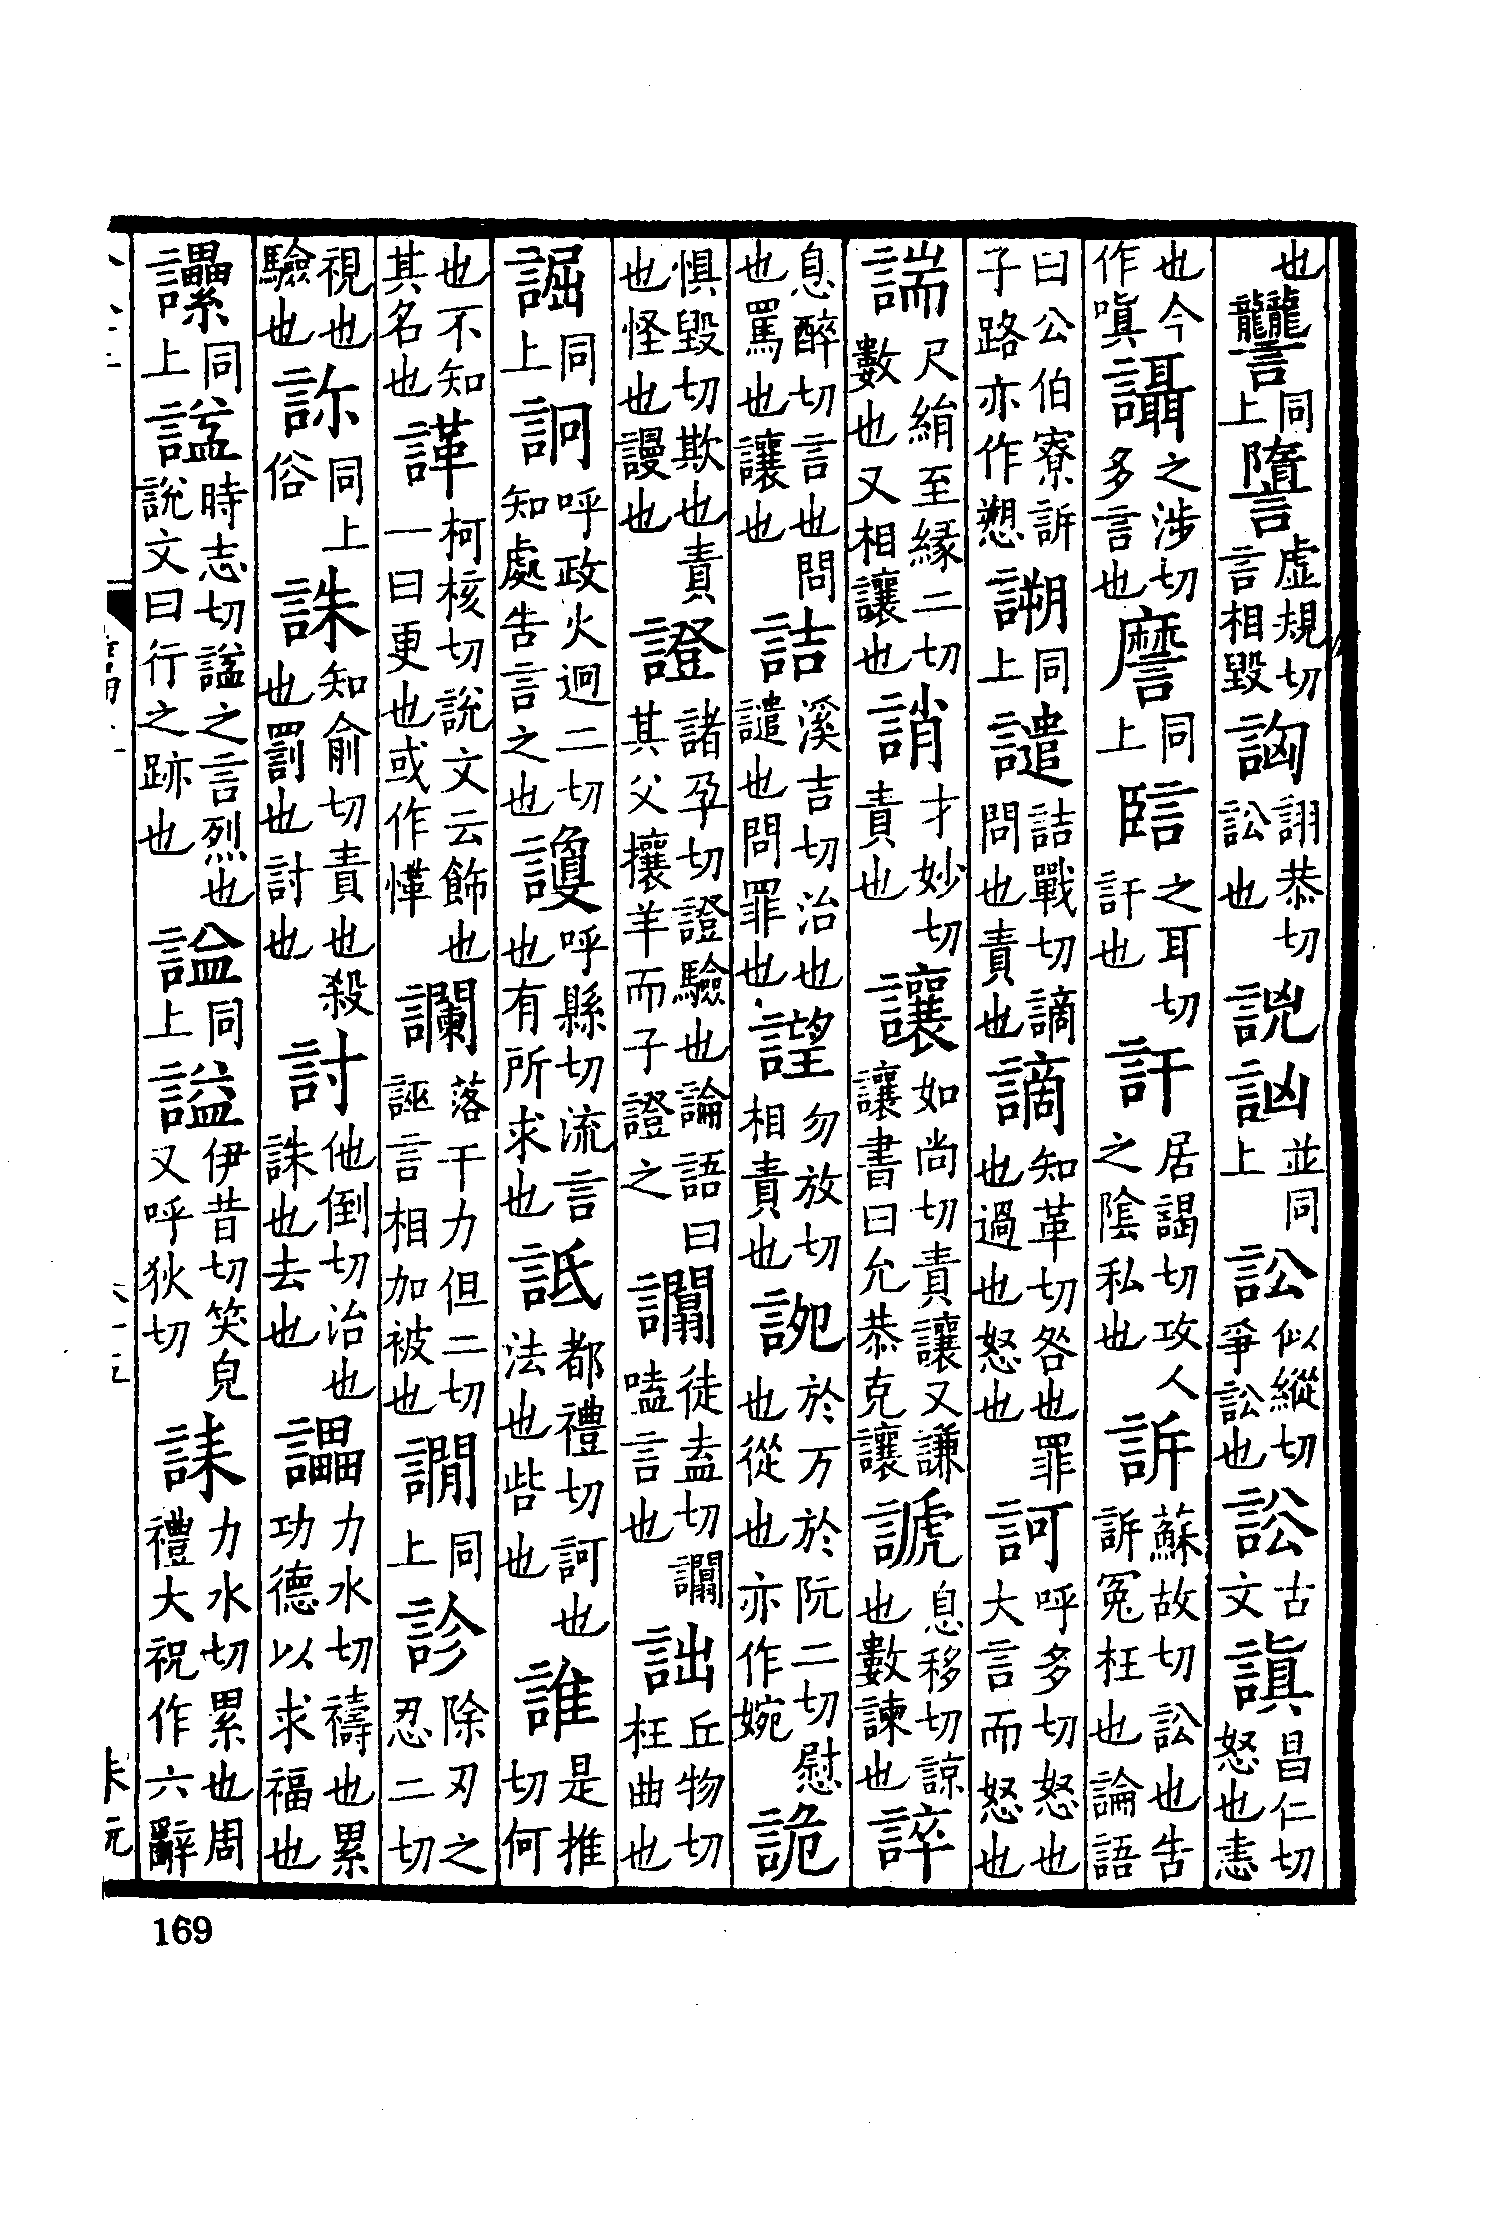 也讋同上𧬨虚規切言相毀訩詡恭切訟也詾䛪並同上訟似縱切爭訟也䛦古文謓昌仁切怒也恚
也今作嗔讘之涉切多言也𧫢同上䛩之耳切訐也訐居謁切攻人之陰私也訴蘇故切訟也告訴冤枉也論語
曰公伯寮訴子路亦作愬𧪜同上譴詰戰切謫問也責也謫知革切咎也罪也過也怒也訶呼多切怒也大言而怒也
諯尺絹至緣二切數也又相讓也誚才妙切責也讓如尚切責讓又謙讓書曰允恭克讓謕息移切諒也數諫也誶
息醉切言也問也罵也讓也詰溪吉切治也譴也問罪也謹勿放切相責也䛷於万於阮二切慰也從也亦作婉詭
俱毀切欺也責也怪也謾也證諸孕切證驗也論語曰其父攘羊而子證之𧬢徒盍切𧬢嗑言也詘丘物切枉曲也
誳同上詗呼政火迥二切知處告言之也讂呼縣切流言也有所求也詆都禮切訶也法也呰也誰是推切何
也不知其名也諽柯核切說文云飾也一曰更也或作愅讕落干力但二切誣言相加被也𧬘同上診除刃之忍二切
視也驗也䛘同上俗誅知俞切責也殺也罰也討也討他倒切治也誅也去也讄力水切禱也累功德以求福也
𧮢同上諡時志切諡之言烈也說文曰行之跡也𧨟同上謚伊昔切笑皃又呼狄切誄力水切累也周禮大祝作六辭
169